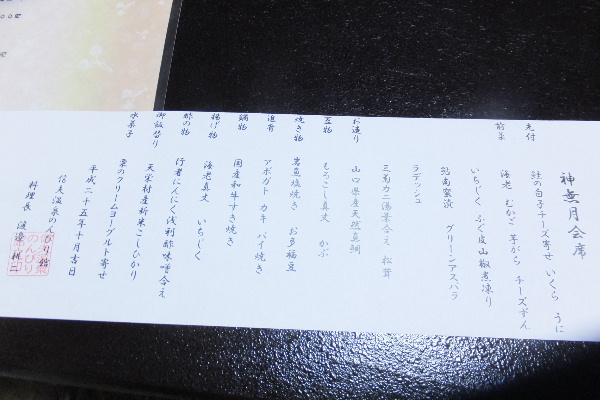 神無月会席
先付 鮭の白子チーズ寄せ いくら うに
前菜 海老 むかご 芋がら チーズずん
いちじく ふぐ皮山椒煮凍り
鮎南蛮漬 グリーンアスパラ
ラデッシュ
三菊カニ湯葉合え 松茸
お造り 山口県産天然真鯛
豆物 もろこし真丈 かぶ
焼き物 岩魚塩焼き お多福豆
追肴 アボガト カキ パイ焼き
鍋物 国産和牛すき焼き
揚げ物 海老真丈 いちじく
酢の物 行者にんにく浅利酢味噌合え
御飯替り 天栄村産新米こしひかり
水菓子 栗のクリームヨーグルト寄せ
平成二十五年十月吉日
信夫温泉のんびり館
料理長 渡邉